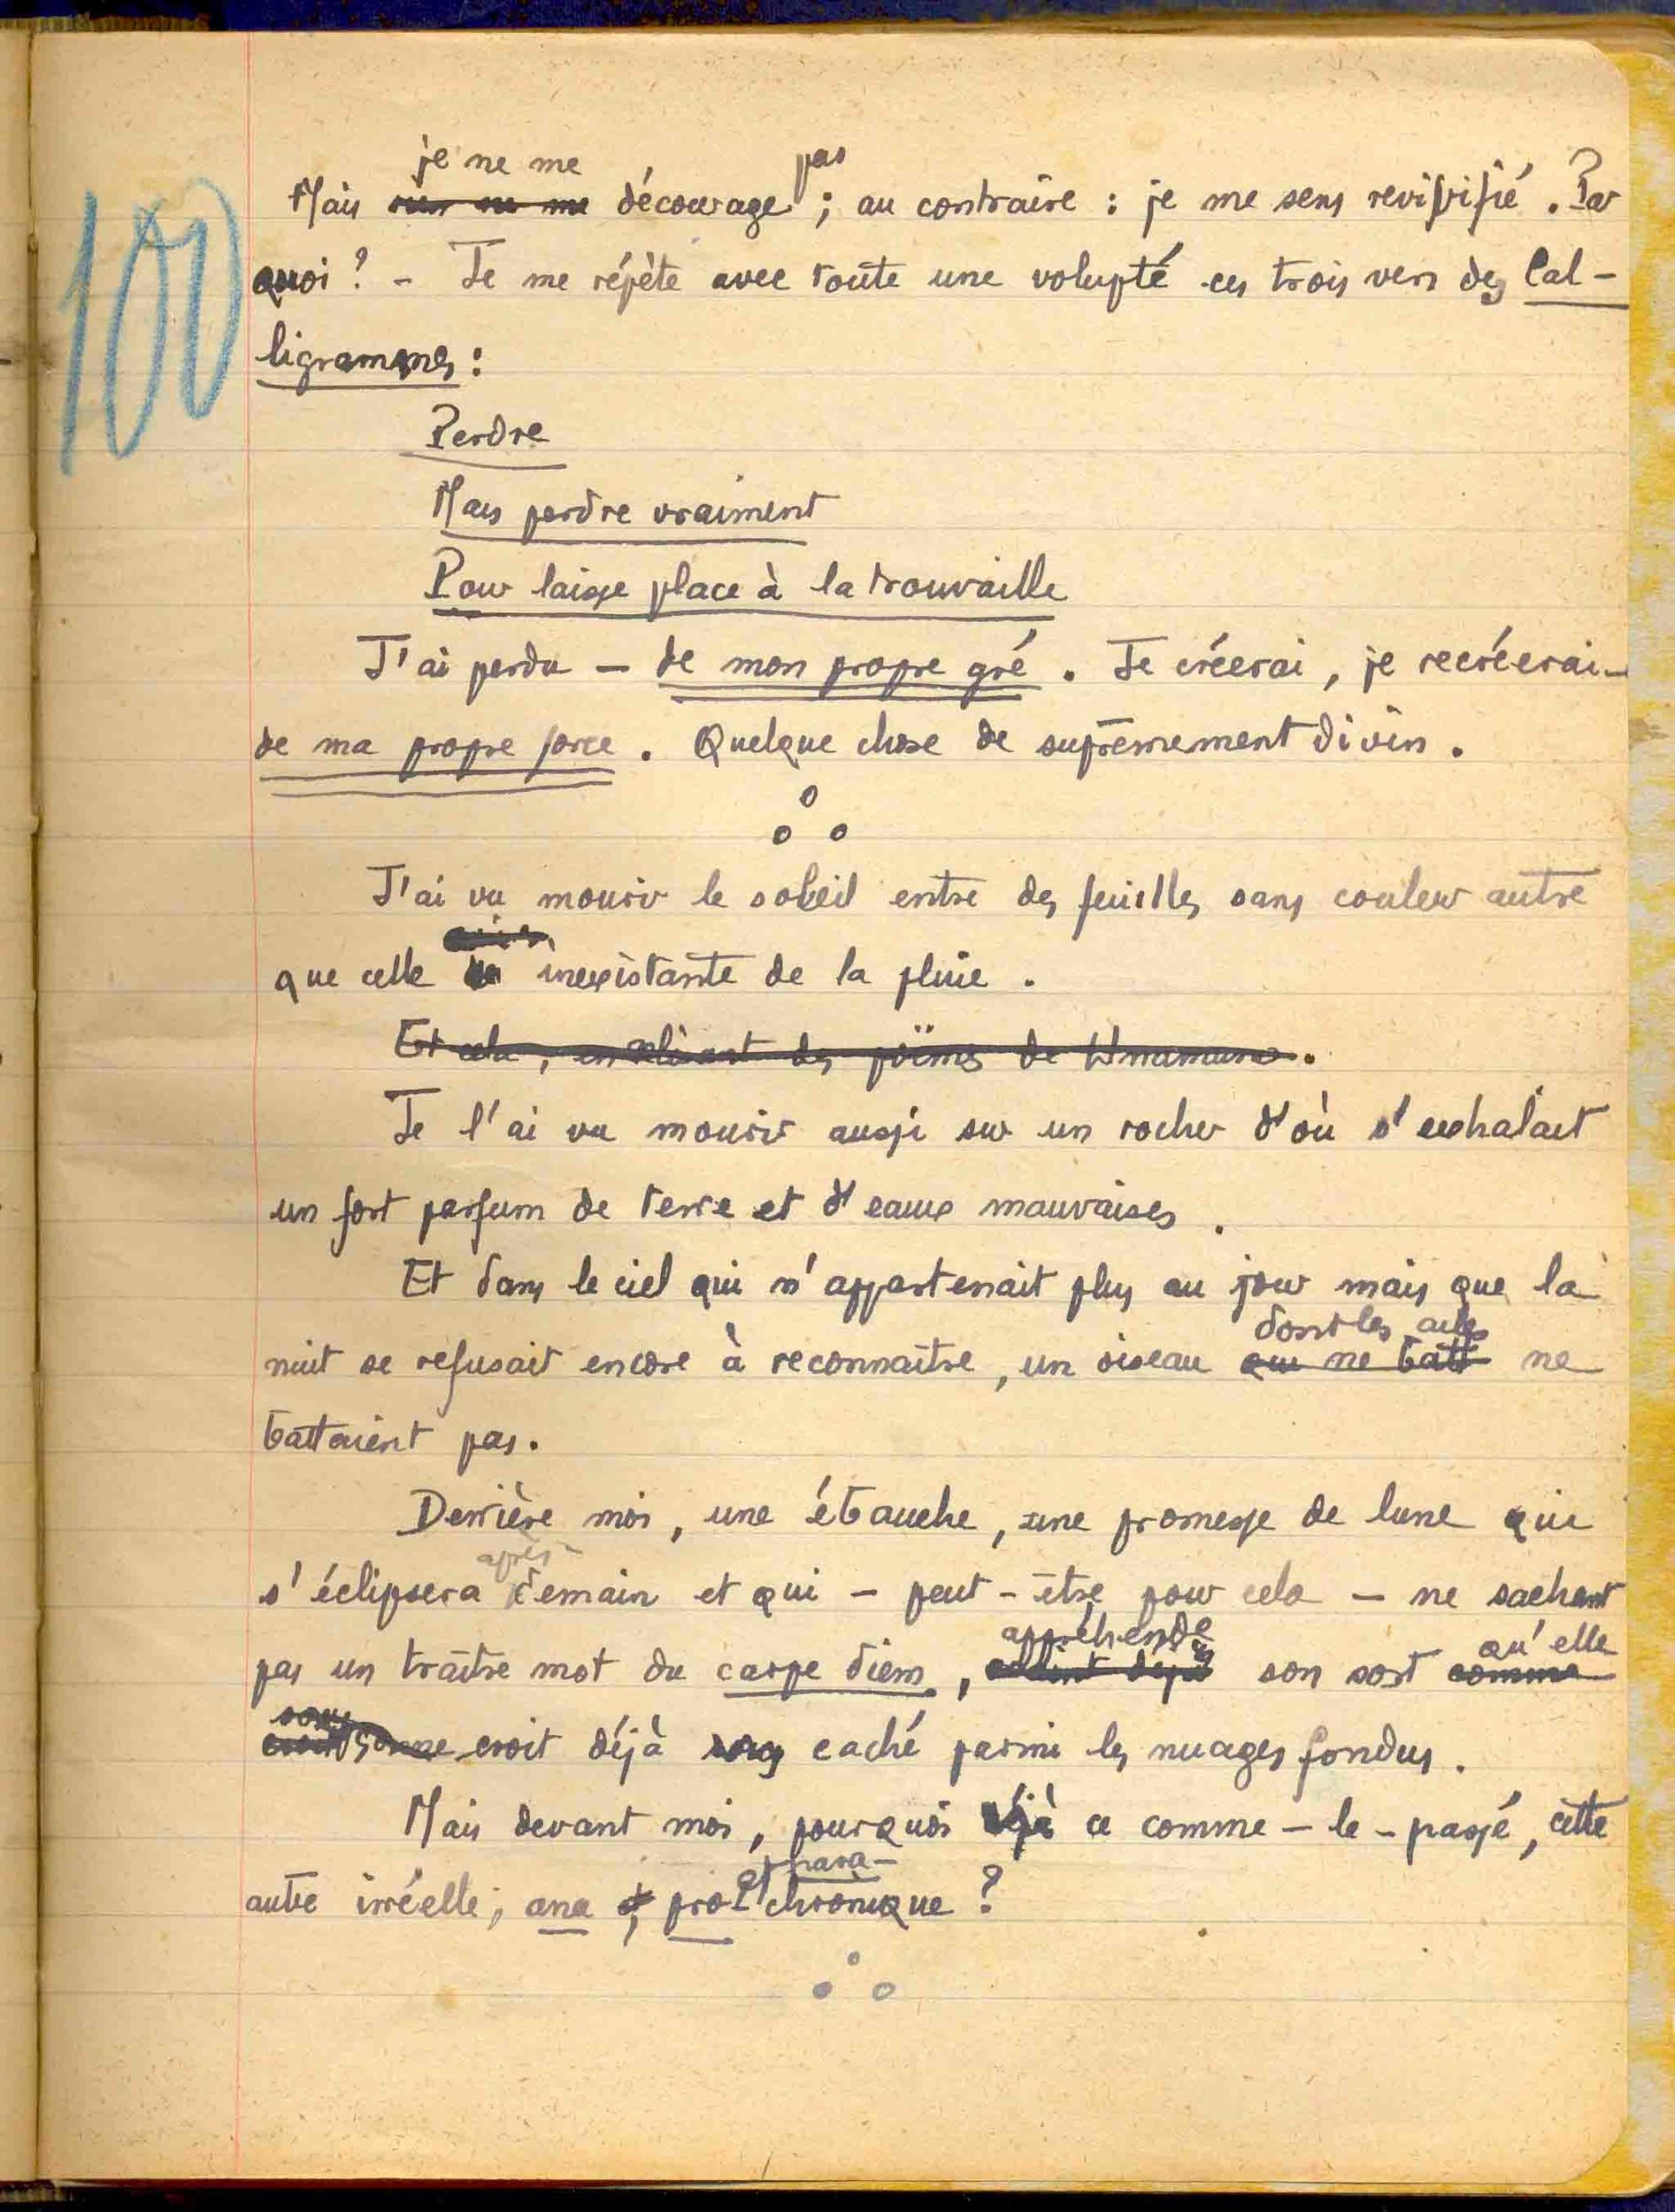 100
je ne me pas
Mais rien ne me décourage ; au contraire : je me sens revivifié. Par
quoi ? – Je me répète avec toute une volupté ces trois vers des Cal-
ligrammes :
Perdre
Mais perdre vraiment
Pour laisse place à la trouvaille
J'ai perdu – de mon propre gré. Je créerai, je recréerai –
de ma propre force. Quelque chose de suprêmement divin.
J'ai vu mourir le soleil entre des feuilles sans couleur autre
que celle inexistante de la pluie.
Et cela, en relisant des poëmes de Unamuno.
Je l'ai vu mourir aussi sur un rocher d'où s'exhalait
un fort parfum de terre et d'eaux mauvaises.
Et dans le ciel qui n'appartenait plus au jour mais que la
dont les ailes
nuit se refusait encore à reconnaître, un oiseau qui ne batt ne
battaient pas.
Derrière moi, une ébauche, une promesse de lune qui
après-
s'éclipsera demain et qui – peut-être pour cela – ne sachant
appréhende qu'elle
pas un traître mot du carpe diem, son sort comme
sous
croit déjà caché parmi les nuages fondus.
Mais devant moi, pourquoi déjà ce comme-le-passé, cette
et para-
autre irréelle, ana, prochronique ?